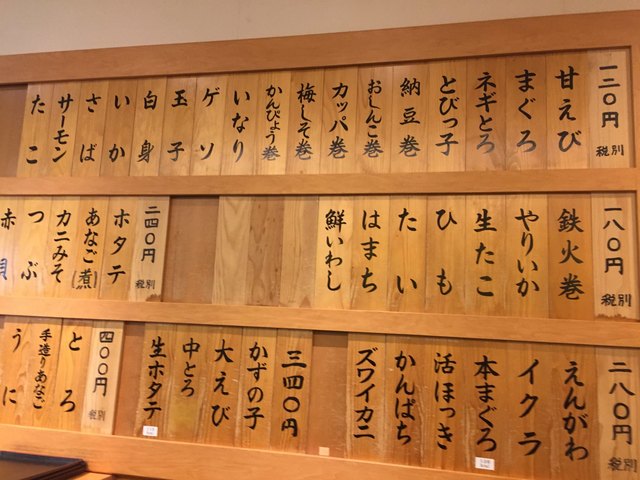 一三〇円 税別
甘えび
まぐろ
ネギとろ
とびっ子
納豆巻
おしんこ巻
カッパ巻
梅しそ巻
かんぴょう巻
いなり
ゲソ
玉子
白身
いか
さば
サーモン
たこ
一八〇円 税別
鉄火巻
やりいか
生たこ
ひも
たい
はまち
鮮いわし
二四〇円 税別
ホタテ
あなご(煮)
カニみそ
つぶ
赤貝
二八〇円 税別
えんがわ
イクラ
本まぐろ
活ほっき
かんぱち
ズワイカニ
三四〇円
かずの子
大えび
中とろ
生ホタテ
四〇〇円 税別
とろ
手造りあなご
うに